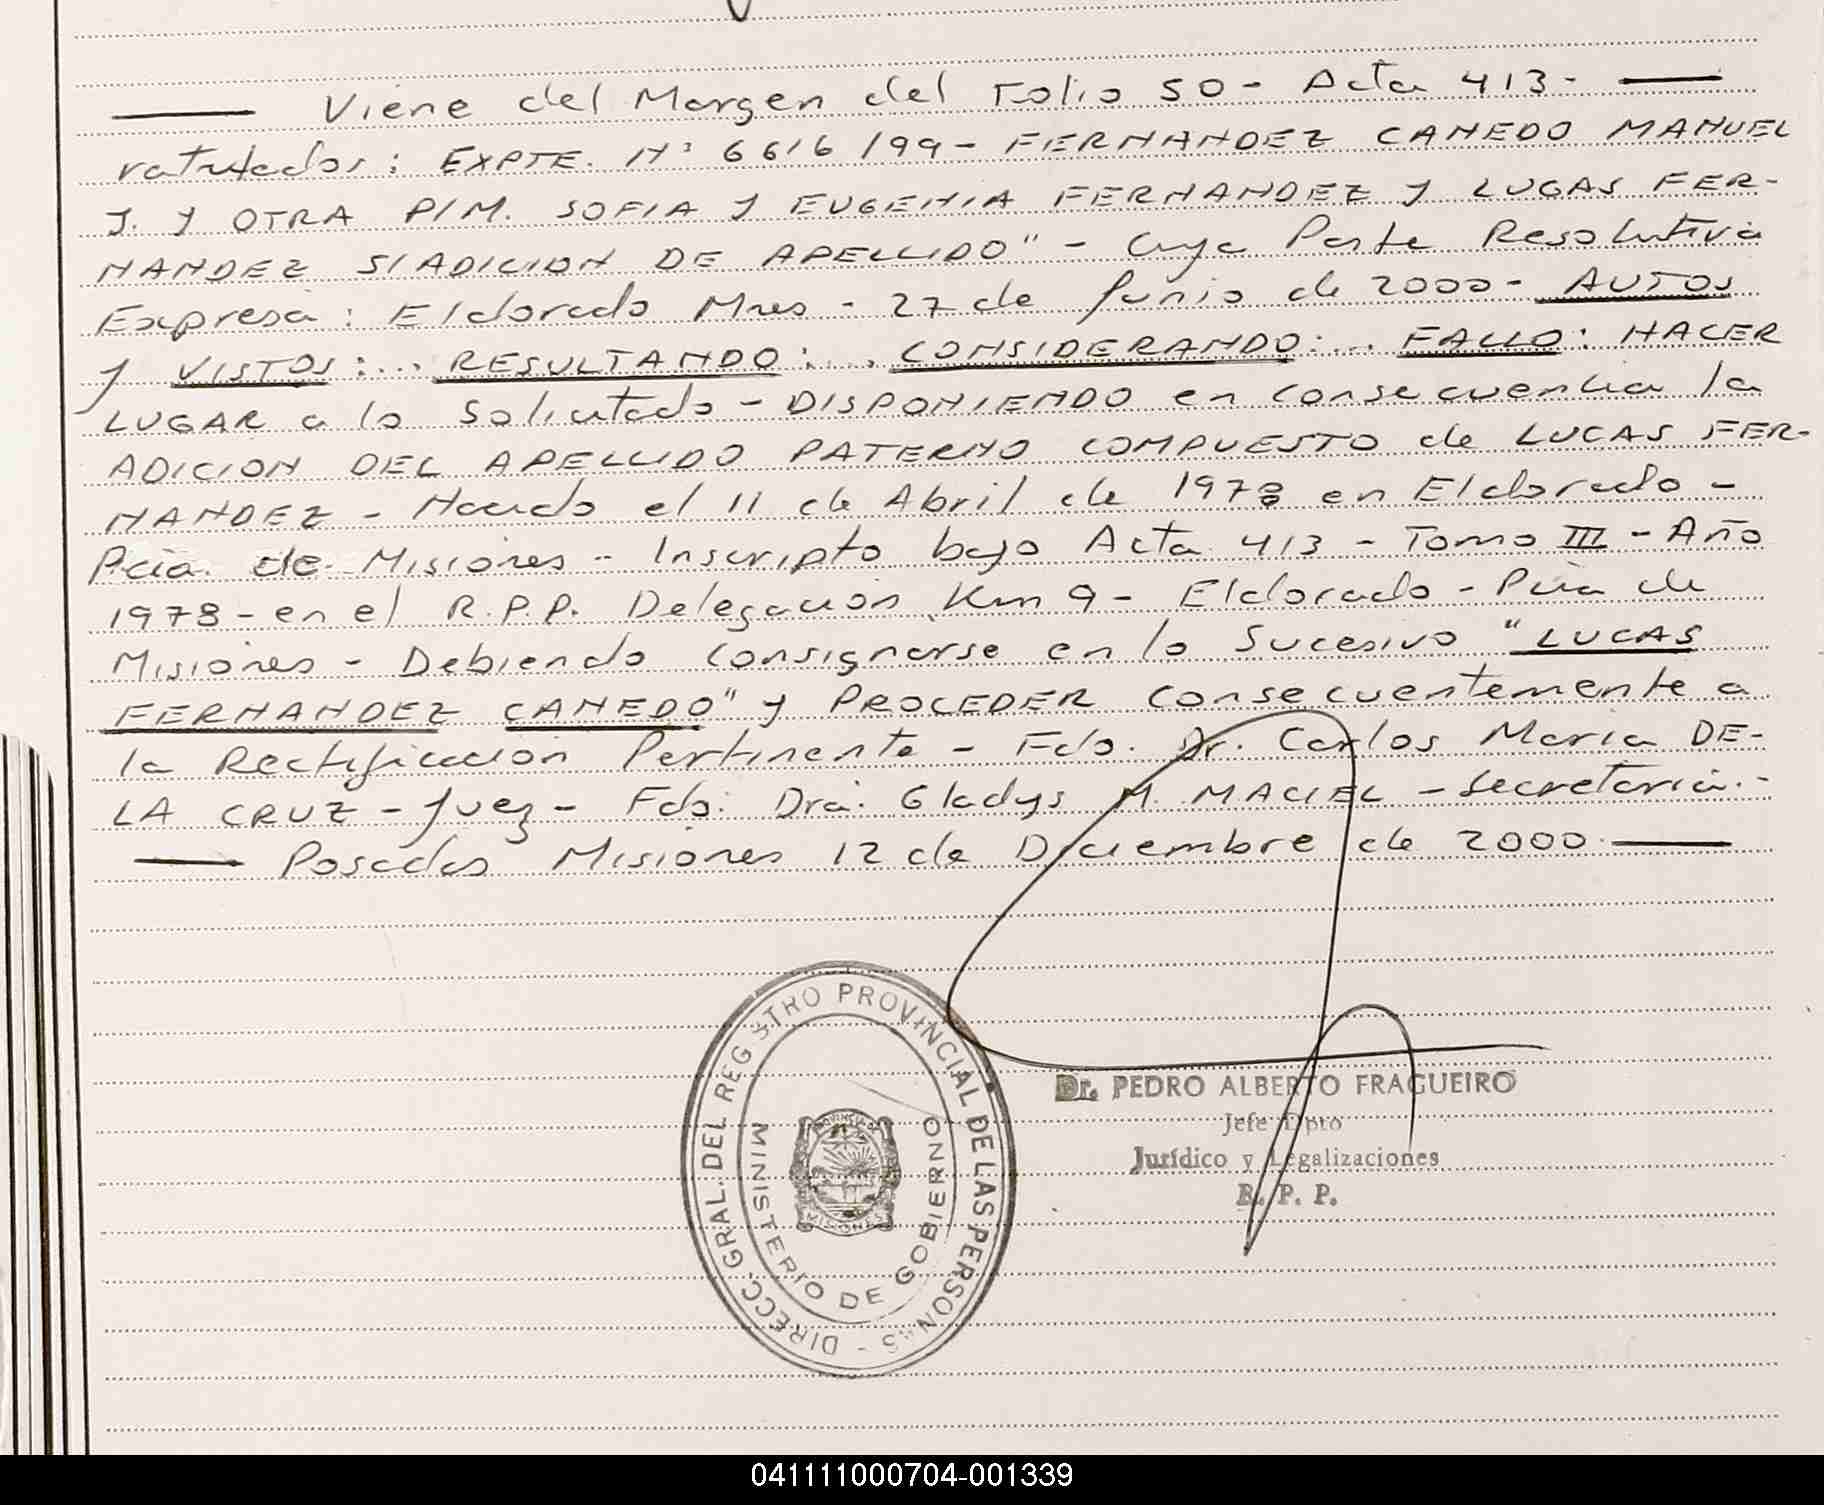 Viene del Margen del Folio 50 - Acta 413 -
ratulados: EXPTE. Nº 6616/99 - FERNANDEZ CANEDO MANUEL
J. Y OTRA P/M. SOFIA Y EUGENIA FERNANDEZ Y LUGAS FER-
NANDEZ S/ADICION DE APELLIDO" - Cuya Parte Resolutiva
Expresa: Eldorado Mnes - 27 de Junio de 2000 - AUTOS
y VISTOS:... RESULTANDO:... CONSIDERANDO:... FALLO: HACER
LUGAR a lo Solicitado - DISPONIENDO en consecuencia la
ADICION DEL APELLIDO PATERNO COMPUESTO de LUCAS FER-
NANDEZ - Nacido el 11 de Abril de 1978 en Eldorado -
Pcia. de Misiones - Inscripto bajo Acta 413 - Tomo III - Año
1978 - en el R.P.P. Delegación Km 9 - Eldorado - Pcia de
Misiones - Debiendo consignarse en lo Sucesivo "LUCAS
FERNANDEZ CANEDO" y PROCEDER consecuentemente a
la Rectificación Pertinente - Fdo. Dr. Carlos Maria DE-
LA CRUZ - Juez - Fdo: Dra. Gladys M. MACIEL - Secretaria.-
Posadas Misiones 12 de Diciembre de 2000.
DIRECC. GRAL. DEL REGISTRO PROVINCIAL DE LAS PERSONAS -
MINISTERIO DE GOBIERNO
PROVINCIA DE
MISIONES
Dr. PEDRO ALBERTO FRAGUEIRO
Jefe Dpto
Jurídico y Legalizaciones
R. P. P.
041111000704-001339